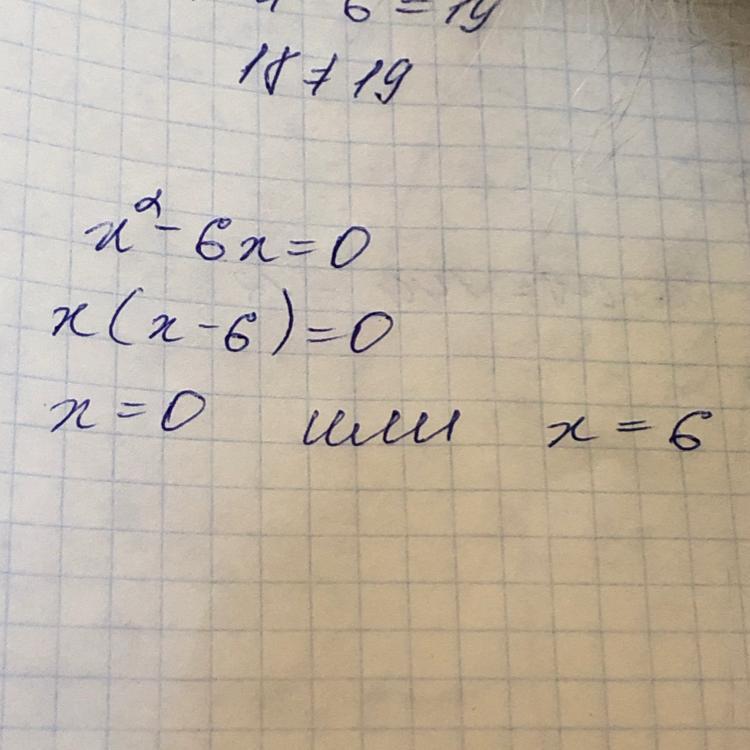 6 = 19
18 ≠ 19
x² - 6x = 0
x(x - 6) = 0
x = 0 или x = 6